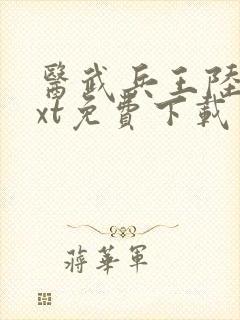 醫武兵王陸
xt免費下載
蔣華軍